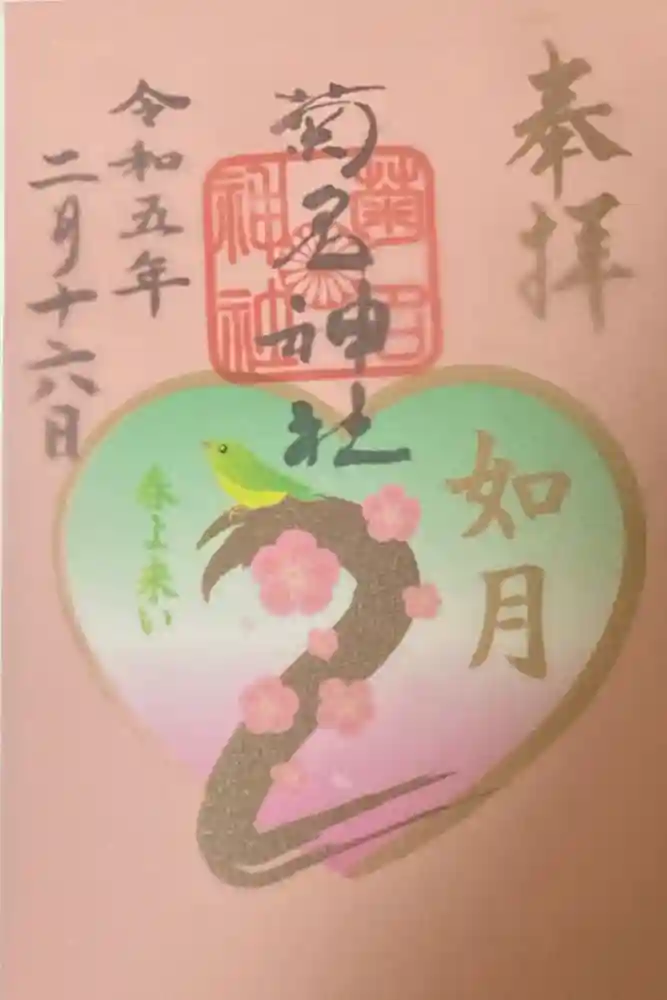 奉拝
如月
菊名神社
菊名
神社
春よ来い
令和五年
二月十六日
2